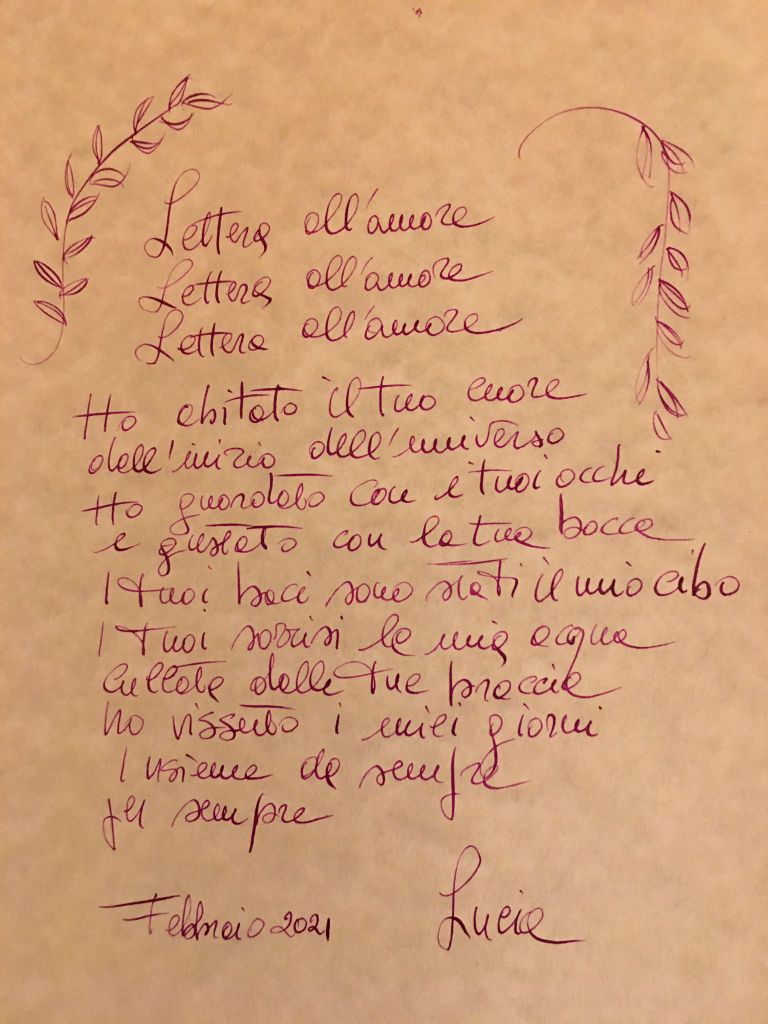 Lettera all'amore
Lettera all'amore
Lettera all'amore
Ho abitato il tuo cuore
dall'inizio dell'universo
Ho guardato con i tuoi occhi
e gustato con la tua bocca
I tuoi baci sono stati il mio cibo
I tuoi sorrisi la mia acqua
Cullata dalle tue braccia
ho vissuto i miei giorni
Insieme da sempre
per sempre
Febbraio 2021
Lucia